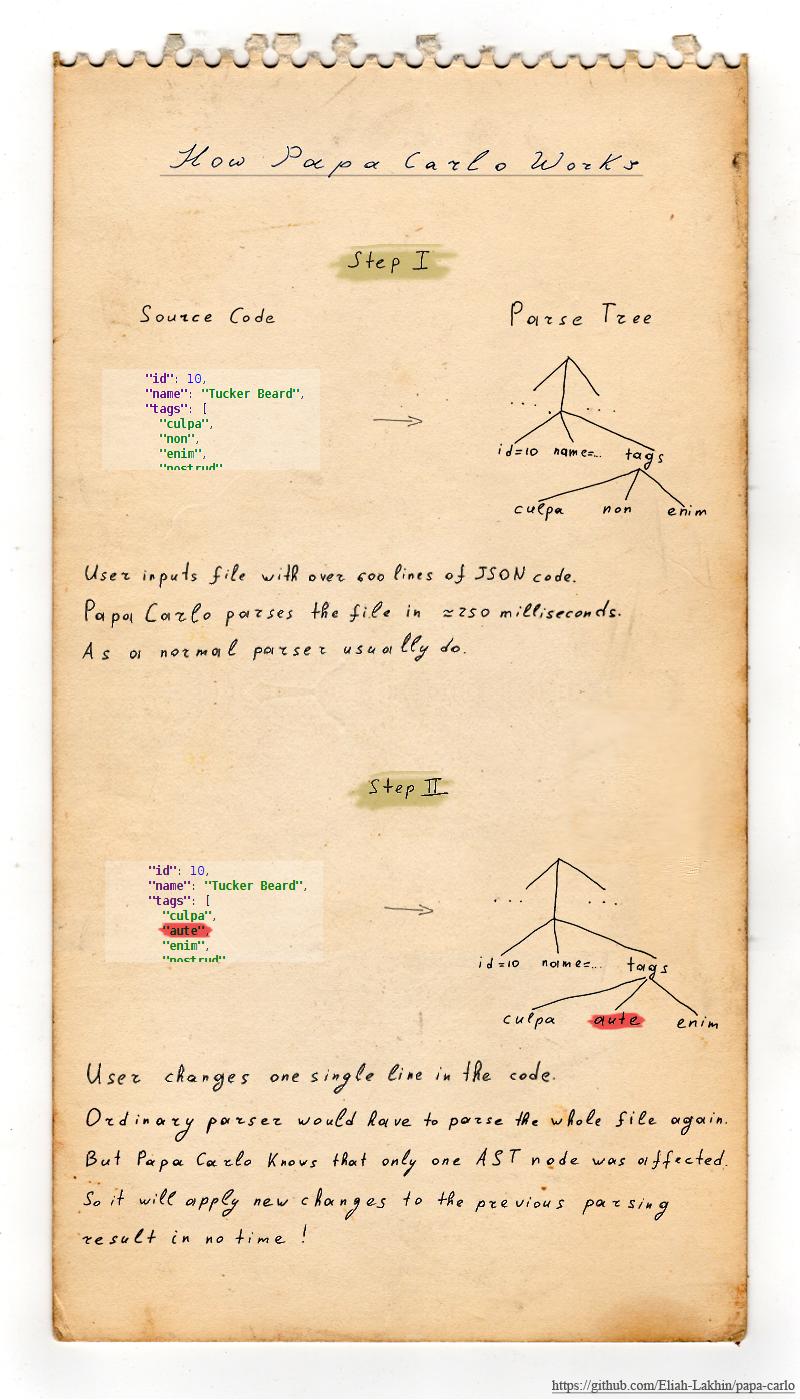 How Papa Carlo Works
Step I
Source Code
Parse Tree
"id": 10,
"name": "Tucker Beard",
"tags": [
"culpa",
"non",
"enim",
"nostrud"
. . . . . . .
id=10 name=... tags
culpa non enim
User inputs file with over 600 lines of JSON code.
Papa Carlo parses the file in ≈250 milliseconds.
As a normal parser usually do.
Step II
"id": 10,
"name": "Tucker Beard",
"tags": [
"culpa",
"aute",
"enim",
"nostrud"
. . . . . .
id=10 name=... tags
culpa aute enim
User changes one single line in the code.
Ordinary parser would have to parse the whole file again.
But Papa Carlo knows that only one AST node was affected.
So it will apply new changes to the previous parsing
result in no time !
https://github.com/Eliah-Lakhin/papa-carlo